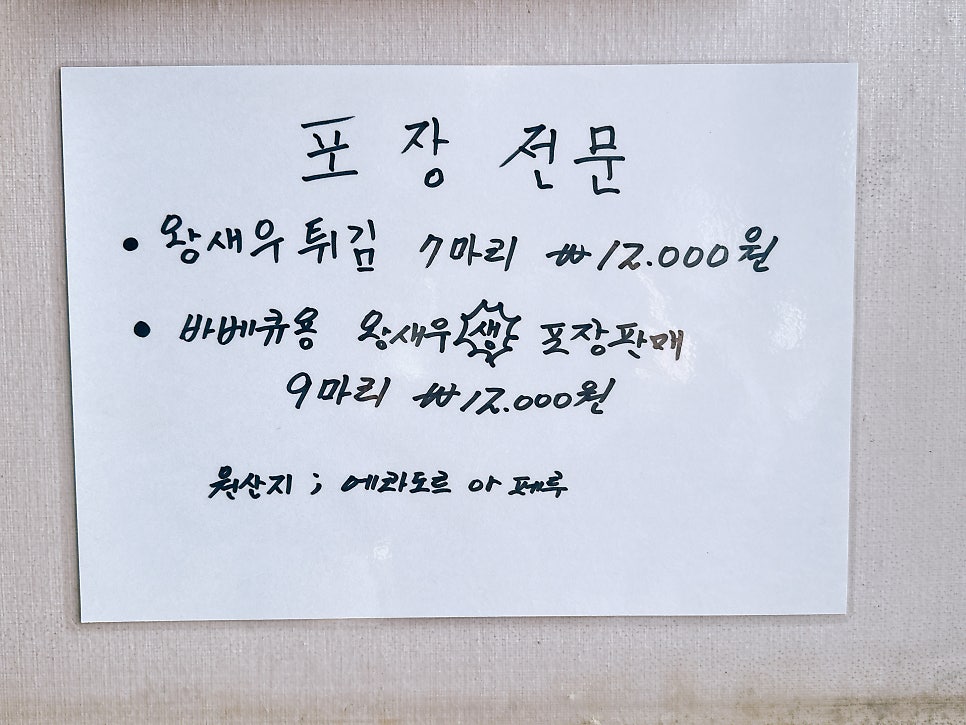 포장 전문
• 왕새우튀김 7마리 ₩12.000원
• 바베큐용 왕새우 생 포장판매
9마리 ₩12.000원
원산지 ; 에콰도르 아 페루